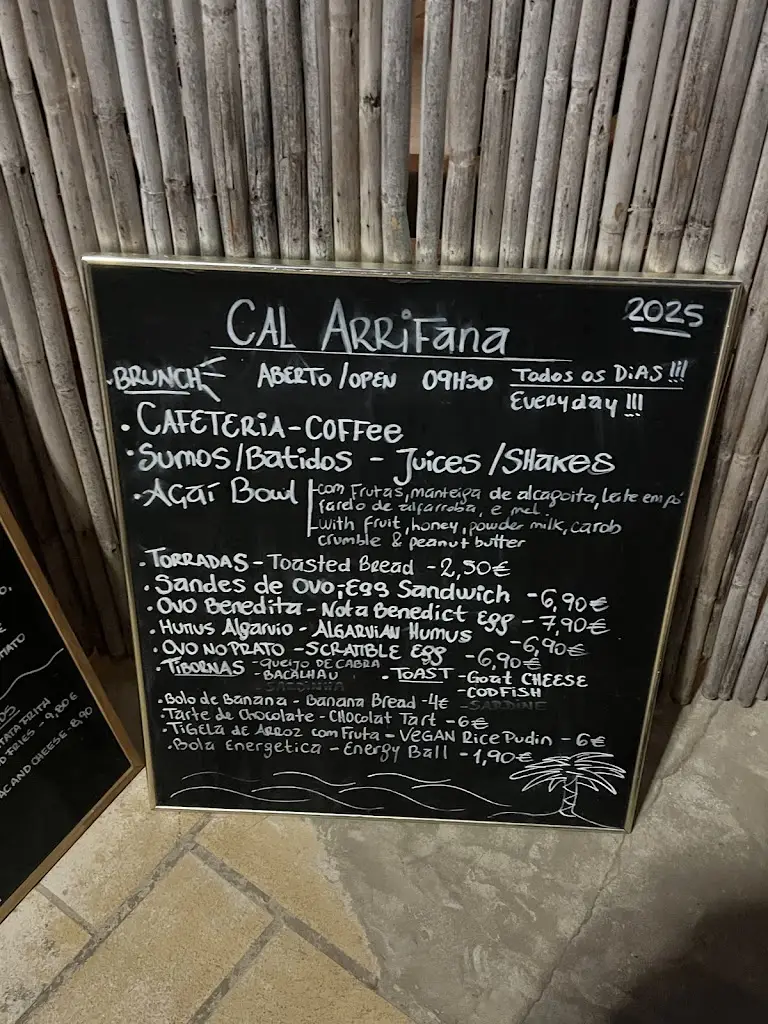 CAL ARRIFANA
2025
BRUNCH ABERTO/OPEN 09H30 TODOS OS DIAS !!!
Everyday !!!
• CAFETERIA - COFFee
• Sumos/Batidos - Juices/SHAKES
• AÇAÍ BOWL
com Frutas, manteiga de alcagoita, leite em pó
farelo de alfarroba, e mel.
with fruit, honey, powder milk, carob
crumble & peanut butter
• TORRADAS - Toasted Bread - 2,50€
• Sandes de Ovo - Egg Sandwich - 6,90€
• OVO Benedita - Not a Benedict Egg - 7,90€
• Humus Algarvio - ALGARVIAN Humus - 6,90€
• OVO NO PRATO - SCRATIBLE Egg - 6,90€
• TIBORNAS - QUEIJO DE CABRA
- BACALHAU
- SARDINHA
• TOAST - Goat CHEESE
- CODFISH
- SARDINE
• Bolo de Banana - Banana Bread - 4€
• Tarte de Chocolate - CHocolat Tart - 6€
• TIGELA DE ARROZ com FRUTA - VEGAN Rice Pudin - 6€
• Bola Energetica - Energy Ball - 1,90€
MATO
TATA FRITA
D FRIES - 9,80€
AC AND CHEESE - 8,90